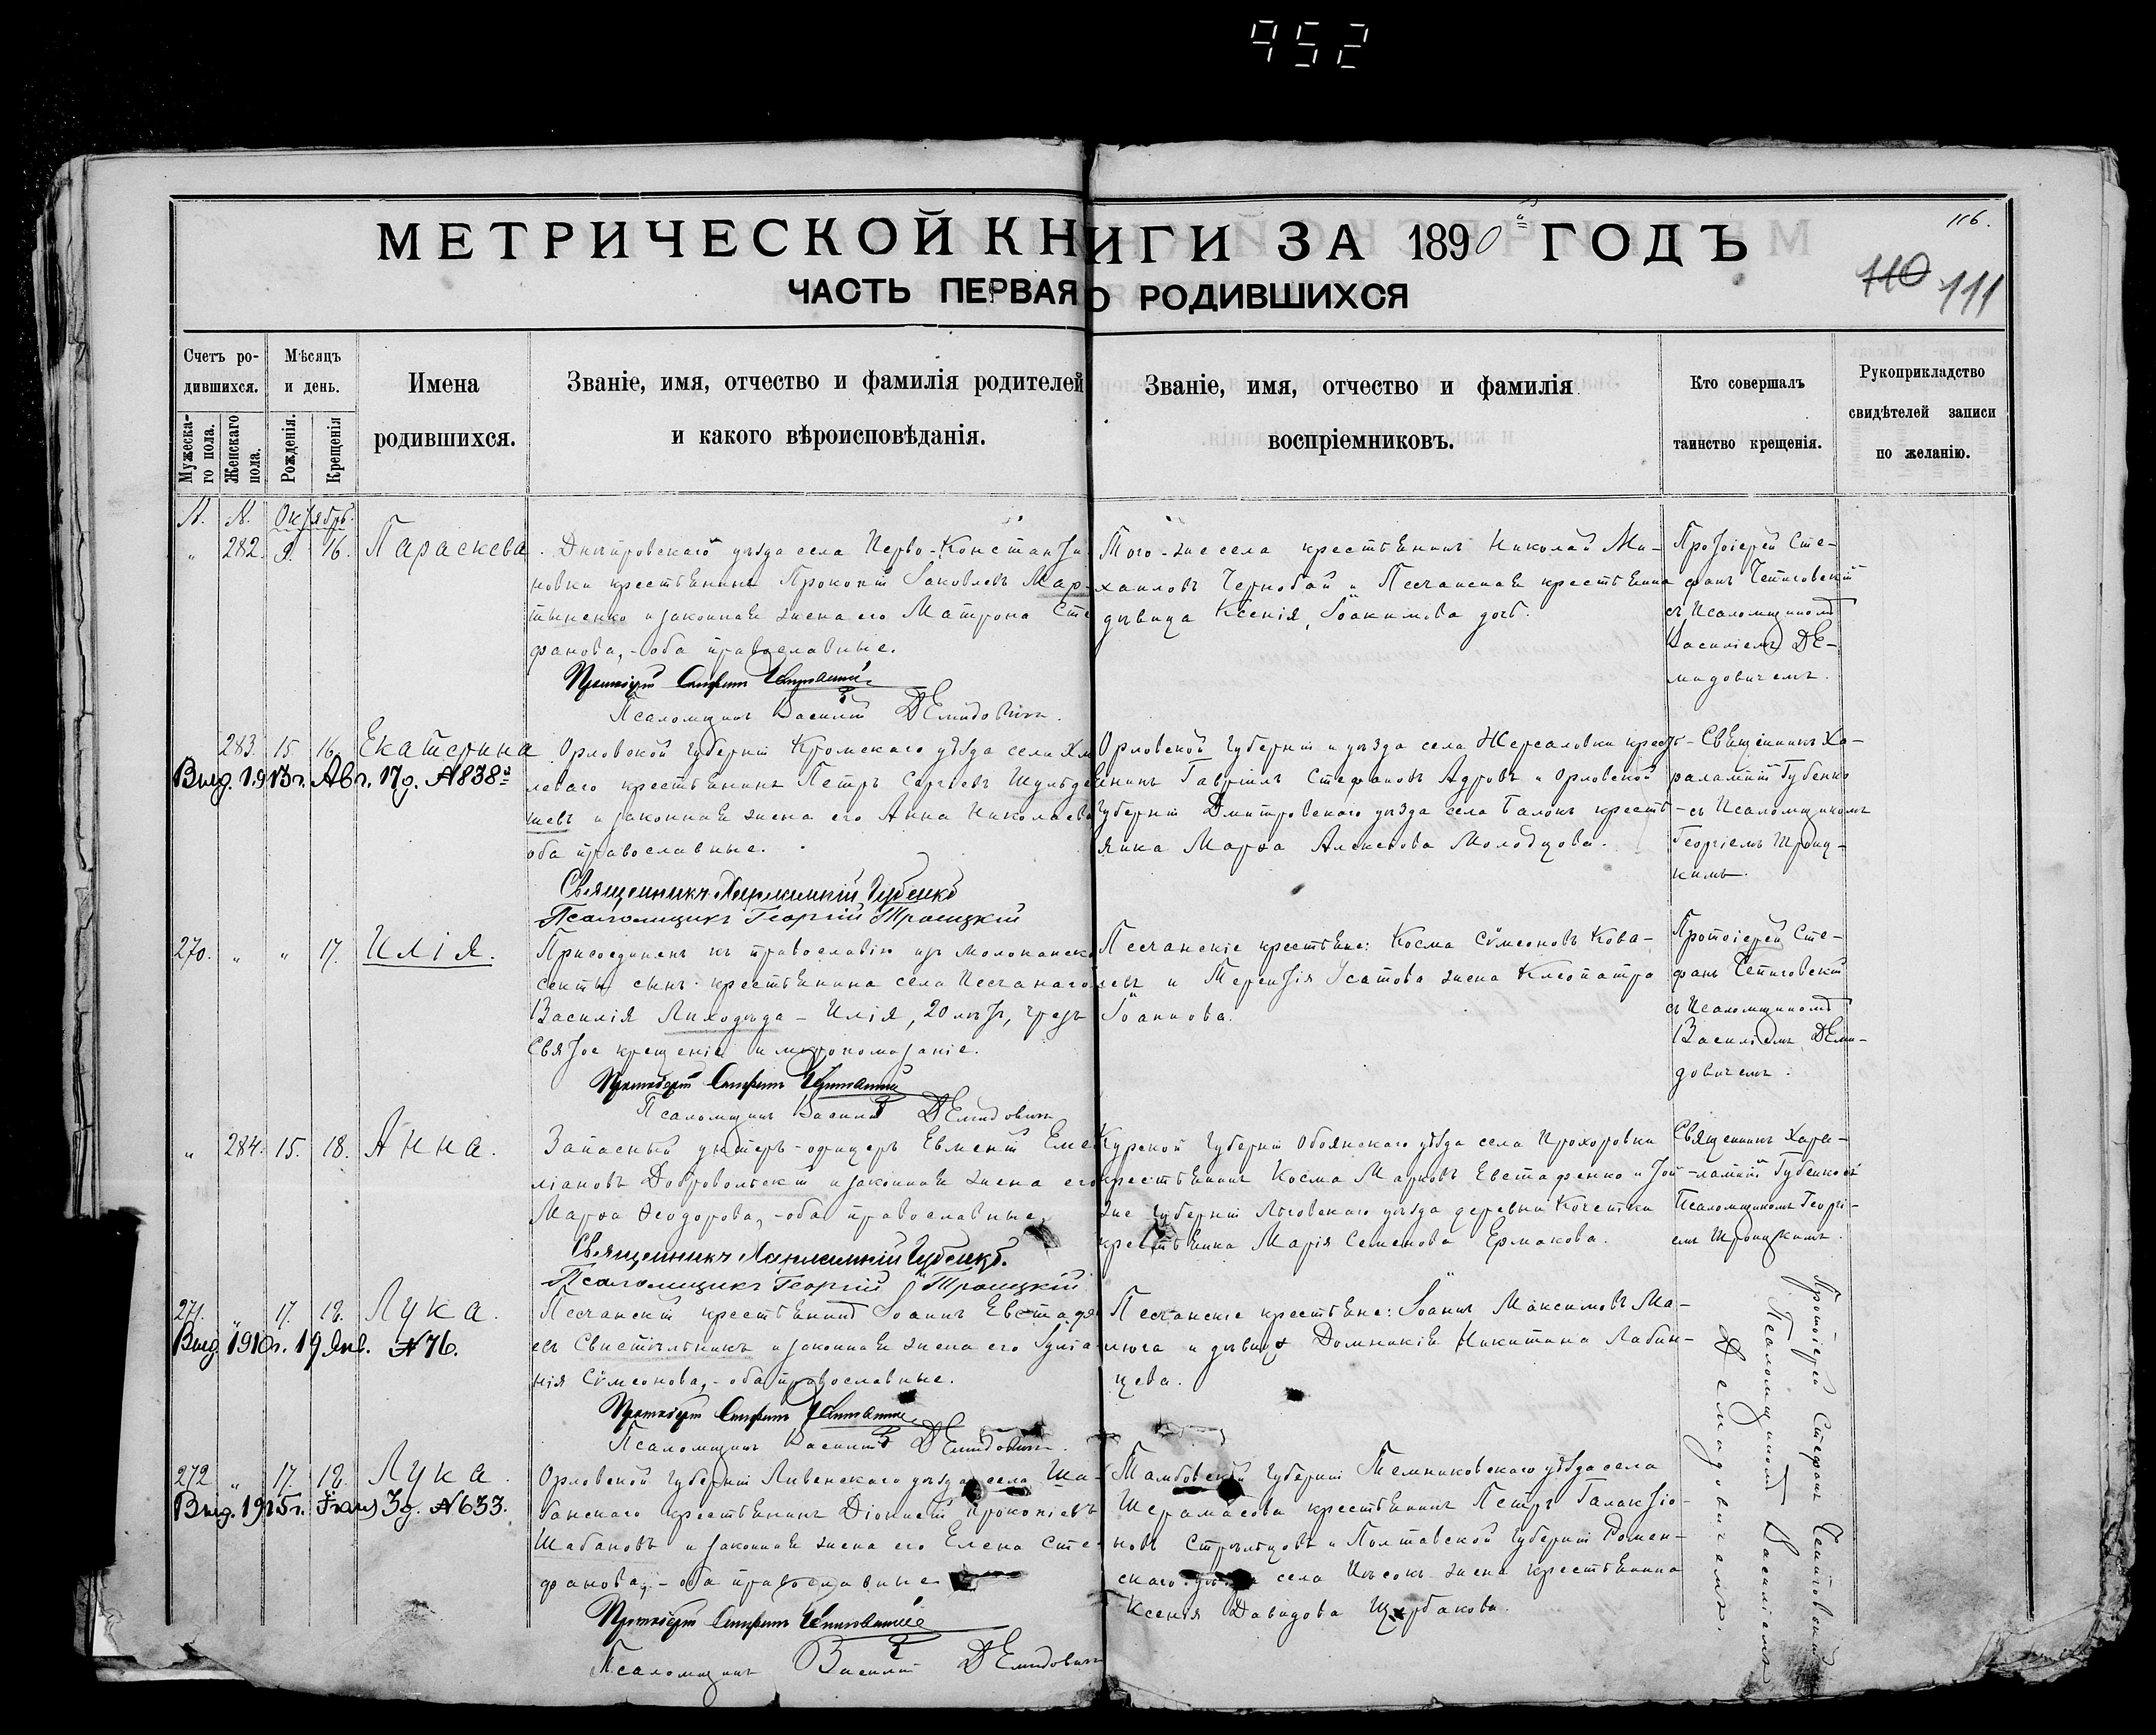 952
116.
МЕТРИЧЕСКОЙ КНИГИ ЗА 1890й ГОДЪ
110 111
ЧАСТЬ ПЕРВАЯ О РОДИВШИХСЯ
Счетъ ро-
дившихся.
Мужеска-
го пола.
Женскаго
пола.
Мѣсяцъ
и день.
Рожденія.
Крещенія
Имена
родившихся.
Званіе, имя, отчество и фамилія родителей
и какого вѣроисповѣданія.
Званіе, имя, отчество и фамилія
воспріемниковъ.
Кто совершалъ
таинство крещенія.
Рукоприкладство
свидѣтелей записи
по желанію.
№. №. Октябрь.
" 282. 9. 16. Параскева.
Днѣпровскаго уѣзда села Перво-Константи
новки крестьянинъ Прокопій Іаковлевъ Мар
тыненко и законная жена его Матрона Сте
фанова, - оба православные.
Протоіерей Стефанъ
Псаломщикъ Василій Демидовичъ.
Того-же села крестьянинъ Николай Ми-
хаиловъ Чернобай и Песчанская крестьянка
дѣвица Ксенія, Іоакимова дочь.
Протоіерей Сте-
фанъ
съ Псаломщикомъ
Василіемъ Де-
мидовичемъ.
283. 15. 16. Екатерина
Выд. 1913г. Авг. 17д. №838й
Орловской губерніи Кромскаго уѣзда села Хм
леваго крестьянинъ Петръ Сергѣевъ
шевъ и законная жена его Анна Николаева
оба православные.
Священникъ Харлампій Губенко
Псаломщикъ Георгій Троицкій
Орловской губерніи и уѣзда села крестъ-
янинъ Гавріилъ Стефановъ и Орловской
губерніи Дмитровскаго уѣзда села крестъ-
янка Марѳа Алексѣева Молодцова.
Священникъ Ха-
ралампій Губенко
съ Псаломщикомъ
Георгіемъ Троиц-
кимъ.
270. " " 17. Илія.
Присоединенъ къ православію изъ молоканск
секты сынъ крестьянина села Песчанаго
Василія Лиходѣда - Илія, 20 лѣтъ, чрезъ
Святое крещеніе и мѵропомазаніе.
Протоіерей Стефанъ
Псаломщикъ Василій Демидовичъ
Песчанскіе крестьяне: Косма Сѵмеоновъ Кова-
левъ и Терентія Усатова жена Клеопатра
Іоаннова.
Протоіерей Сте-
фанъ
съ Псаломщикомъ
Василіемъ Деми-
довичемъ.
" 284. 15. 18. Анна.
Запасный унтеръ-офицеръ Евменій Еме
ліановъ Добровольскій и законная жена его
Марѳа Ѳеодорова, - оба православные.
Священникъ Харлампій Губенко.
Псаломщикъ Георгій Троицкій
Курской губерніи Обоянскаго уѣзда села Прохоровки
крестьянинъ Косма Марковъ Евстафенко и той
же губерніи Льговскаго уѣзда деревни Кочетки
крестьянка Марія Семенова Ермакова.
Священникъ Хара-
лампій Губенко съ
Псаломщикомъ Георгі-
емъ Троицкимъ.
271. " 17. 18. Лука.
Выд. 1910г. 19 Янв. №76.
Песчанскій крестьянинъ Іоаннъ Евстафі
евъ Свистѣльникъ и законная жена его Іуліа
нія Сѵмеонова, - оба православные.
Протоіерей Стефанъ
Псаломщикъ Василій Демидовичъ.
Песчанскіе крестьяне: Іоаннъ Максимовъ Ма-
нюга и дѣвица Домникія Никитина Лабин-
цева.
Протоіерей Стефанъ
Псаломщикомъ Василіемъ
Демидовичемъ.
272 " 17. 18. Лука.
Выд. 1915г. 3д. №633.
Орловской губерніи Ливенскаго уѣзда села Ша-
банскаго крестьянинъ Діонисій Прокопіевъ
Шабановъ и законная жена его Елена Сте
фанова, - оба православные
Протоіерей Стефанъ
Псаломщикъ Василій Демидовичъ
Тамбовской губерніи Темниковскаго уѣзда села
крестьянинъ Петръ Галактіо-
новъ Стрѣльцовъ и Полтавской губерніи Ромен-
скаго уѣзда села жена крестьянина
Ксенія Давидова Щербакова.